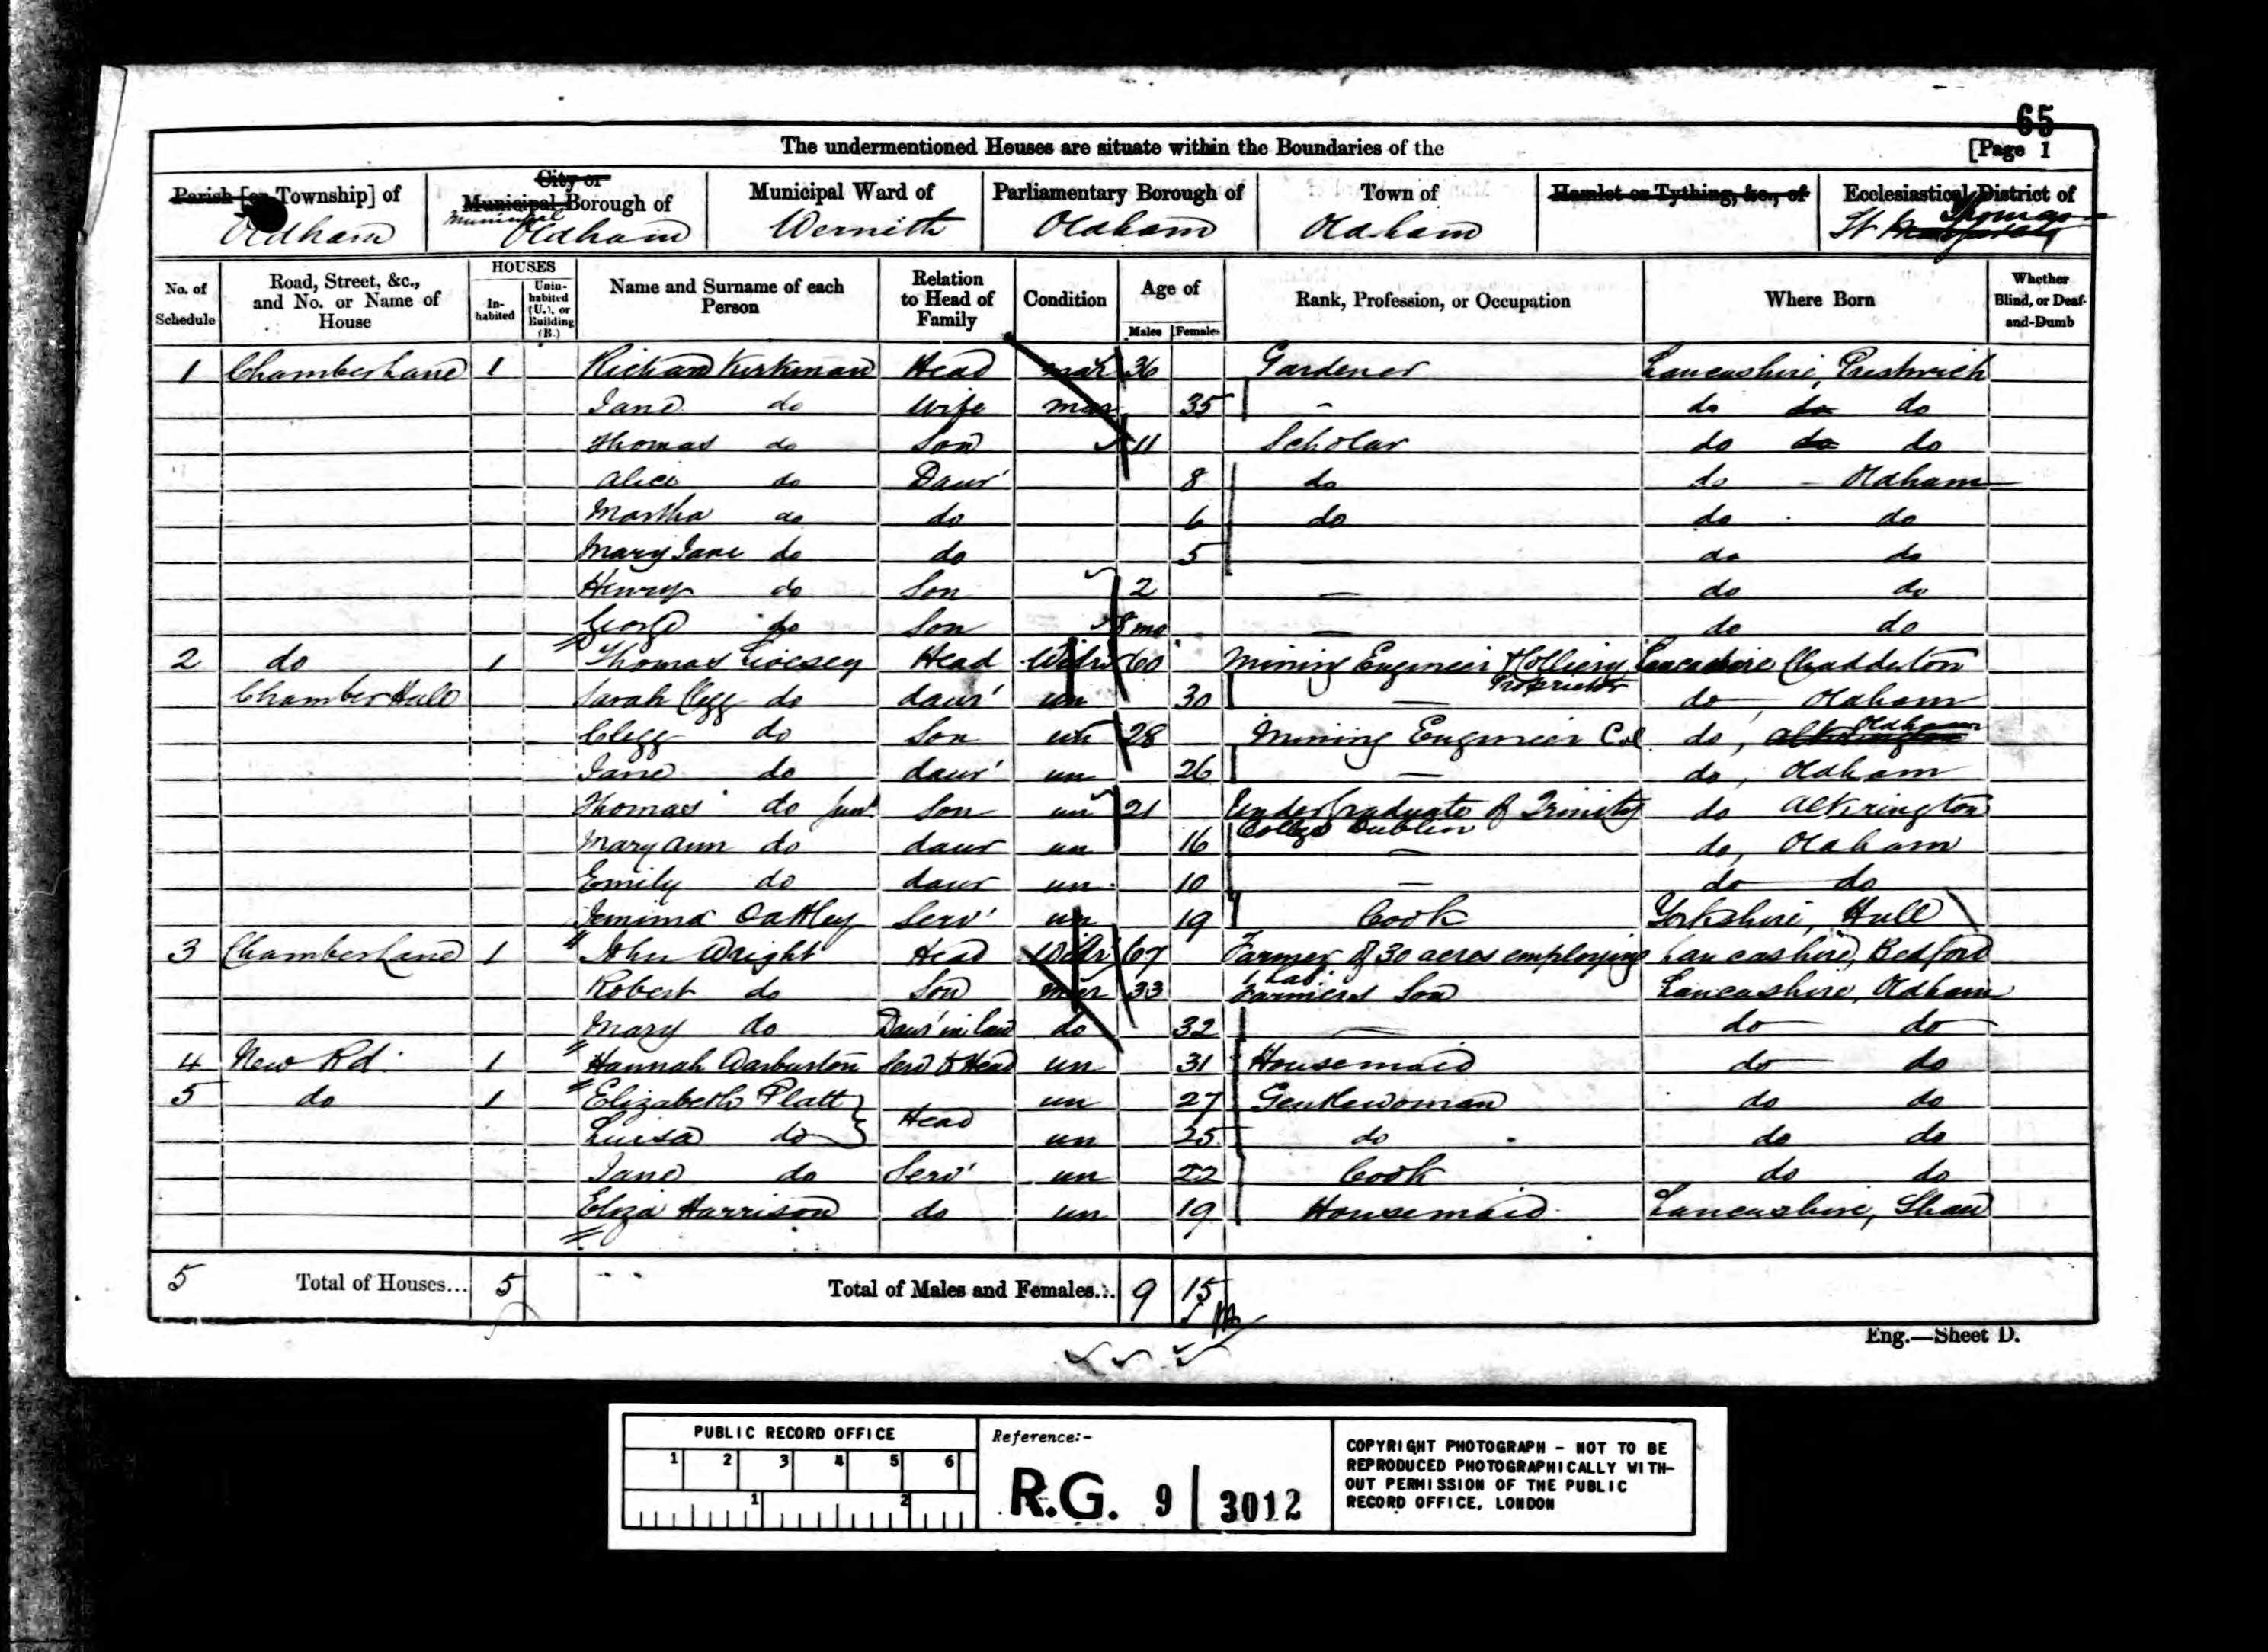 65
The undermentioned Houses are situate within the Boundaries of the [Page 1
Parish [or Township] of City or Municipal Borough of Municipal Ward of Parliamentary Borough of Town of Hamlet or Tything, &c., of Ecclesiastical District of
Oldham Municipal Oldham Werneth Oldham Oldham St Thomas
No. of Schedule Road, Street, &c., and No. or Name of House HOUSES In-habited Unin-habited (U.), or Building (B.) Name and Surname of each Person Relation to Head of Family Condition Age of Males Females Rank, Profession, or Occupation Where Born Whether Blind, or Deaf-and-Dumb
1 Chamber Lane 1 Richard Kirkman Head mar 36 Gardener Lancashire, Prestwich
Jane do Wife mar 35 – do do do
Thomas do Son 11 Scholar do do do
Alice do Daur 8 do do – Oldham
Martha do do 6 do do do
Mary Jane do do 5 do do
Henry do Son 2 — do do
George do Son 8 mo — do do
2 do 1 Thomas Livesey Head Widr 60 Mining Engineer & Colliery Proprietor Lancashire Chadderton
Chamber Hall Sarah Clegg do daur un 30 — do, Oldham
Clegg do Son un 28 Mining Engineer Col do, Alkrington Oldham
Jane do daur un 26 — do, Oldham
Thomas do Junr Son un 21 Under Graduate of Trinity College Dublin do Alkrington
Mary Ann do daur un 16 — do, Oldham
Emily do daur un 10 — do do
Jemima Oakley Serv un 19 Cook Yorkshire, Hull
3 Chamber Lane 1 John Wright Head Widr 67 Farmer of 30 acres employing 1 Lab Lancashire, Bedford
Robert do Son mar 33 Farmers Son Lancashire, Oldham
Mary do Daur in law do 32 — do do
4 New Rd. 1 Hannah Warburton Serv to Head un 31 Housemaid do do
5 do 1 Elizabeth Platt } Head un 27 Gentlewoman do do
Luisa do } un 25 do do do
Jane do Serv un 22 Cook do do
Eliza Harrison do un 19 Housemaid Lancashire, Shaw
5 Total of Houses... 5 Total of Males and Females... 9 15
Eng.—Sheet D.
PUBLIC RECORD OFFICE
1 2 3 4 5 6
1 2
Reference:-
R.G. 9 / 3012
COPYRIGHT PHOTOGRAPH - NOT TO BE
REPRODUCED PHOTOGRAPHICALLY WITH-
OUT PERMISSION OF THE PUBLIC
RECORD OFFICE, LONDON